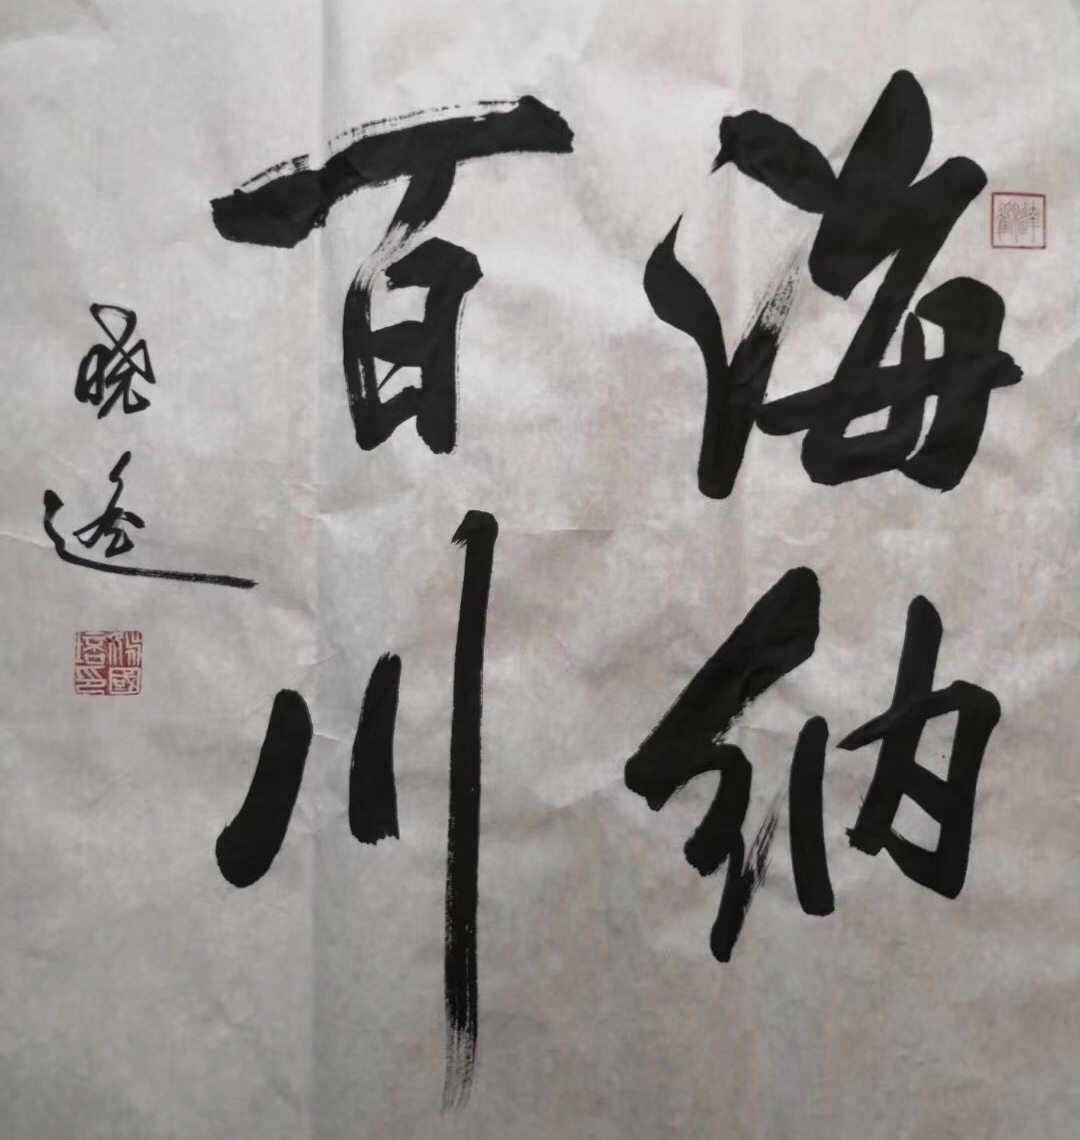 海纳
百川
晓遥